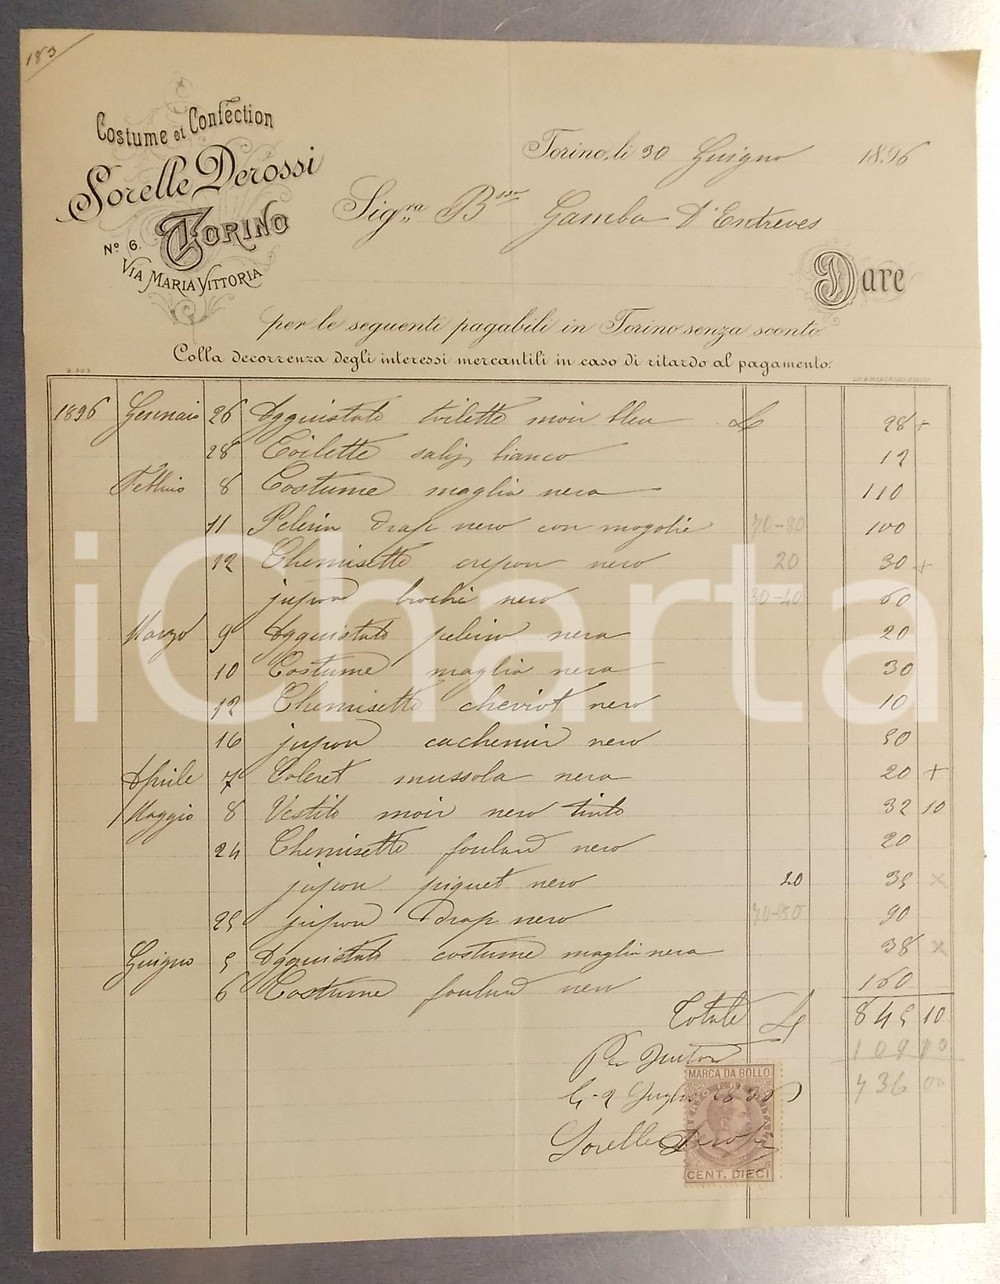 183
Costume et Confection
Sorelle Derossi
Nº 6. Torino
Via Maria Vittoria
Torino, li 30 Giugno 1896
Sig.ra B.ssa Gamba D'Entreves
Dare
per le seguenti pagabili in Torino senza sconto.
Colla decorrenza degli interessi mercantili in caso di ritardo al pagamento.
1896 Gennaio 26 Aggiustato toilette moir bleu L 28 +
28 Toilette bianco 12
Febbraio 8 Costume maglia nera 110
11 Pelerin drap nero con 70-80 100
12 Chemisette crepon nero 20 30 +
jupon broché nero 30-40 60
Marzo 9 Aggiustato pelerin nera 20
10 Costume maglia nera 30
12 Chemisette cheviot nero 10
16 jupon cachemir nero 50
Aprile 7 Coleret mussola nera 20 +
Maggio 8 Vestito moir nero tinto 32 10
24 Chemisette foulard nero 20
jupon piquet nero 20 35 x
25 jupon Drap nero 70-80 90
Giugno 5 Aggiustato costume maglia nera 38 x
6 Costume foulard nero 160
Totale L 845 10
109 10
736 00
MARCA DA BOLLO
Luglio
Sorelle Derossi
CENT. DIECI
iCharta